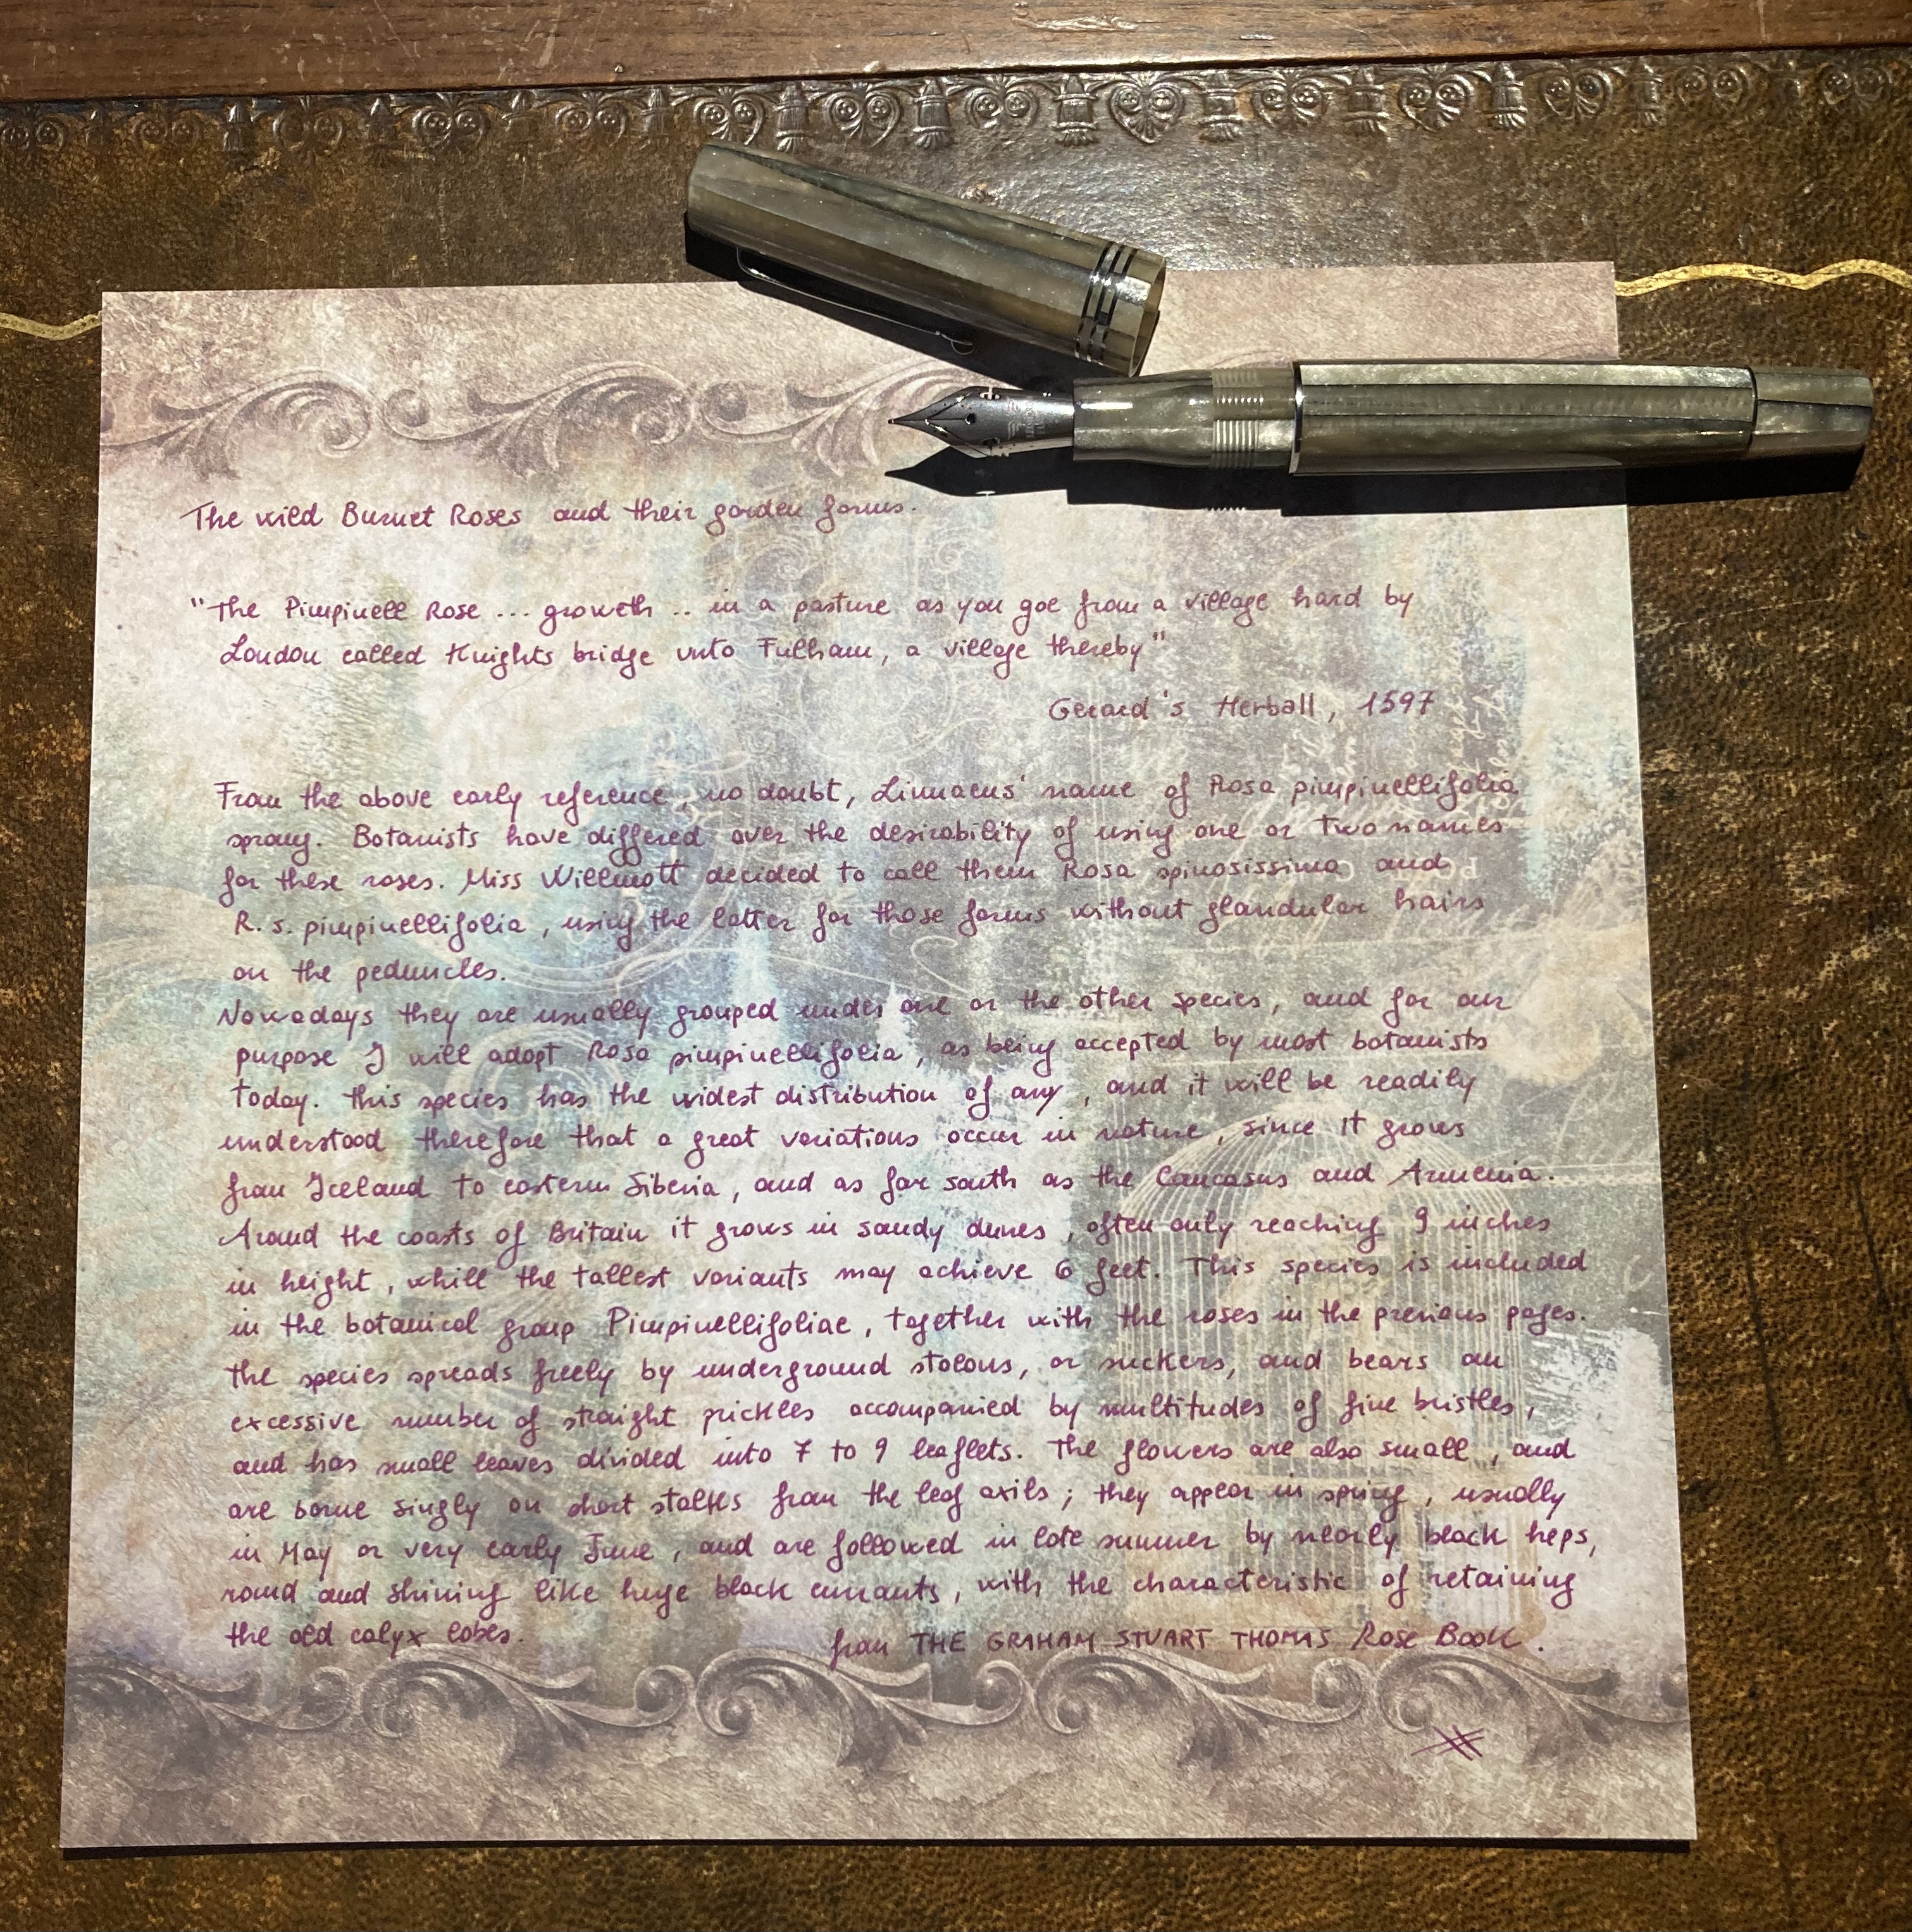 The wild Burnet Roses and their garden forms.
"The Pimpinell Rose ... groweth .. in a pasture as you goe from a village hard by
London called Knights bridge unto Fulham, a village thereby"
Gerard's Herball, 1597
From the above early reference, no doubt, Linnaeus' name of Rosa pimpinellifolia
sprang. Botanists have differed over the desirability of using one or two names
for these roses. Miss Willmott decided to call them Rosa spinosissima and
R. s. pimpinellifolia, using the latter for those forms without glandular hairs
on the peduncles.
Nowadays they are usually grouped under one or the other species, and for our
purpose I will adopt Rosa pimpinellifolia, as being accepted by most botanists
today. This species has the widest distribution of any, and it will be readily
understood therefore that a great variations occur in nature, since it grows
from Iceland to eastern Siberia, and as far south as the Caucasus and Armenia.
Around the coasts of Britain it grows in sandy dunes, often only reaching 9 inches
in height, whill the tallest variants may achieve 6 feet. This species is included
in the botanical group Pimpinellifoliae, together with the roses in the previous pages.
The species spreads freely by underground stolons, or suckers, and bears an
excessive number of straight prickles accompanied by multitudes of fine bristles,
and has small leaves divided into 7 to 9 leaflets. The flowers are also small, and
are borne singly on short stalks from the leaf axils; they appear in spring, usually
in May or very early June, and are followed in late summer by nearly black heps,
round and shining like huge black currants, with the characteristic of retaining
the old calyx lobes.
from THE GRAHAM STUART THOMAS Rose Book.